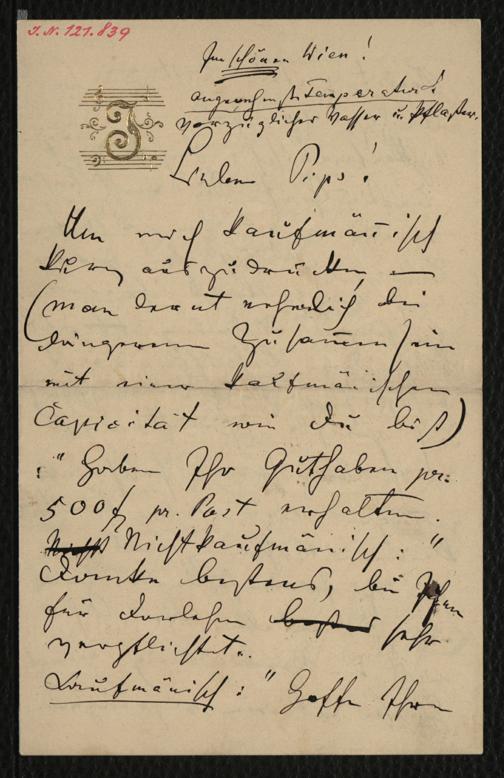 I.N. 121.839
Im schönen Wien!
angenehmste Temperatur!
vorzügliches Wasser u. Pflaster.
J
Lieber Pips!
Um mich kaufmänisch
kurz auszudrücken, –
(man lernt nehmlich bei
längerem Zusammensein
mit einer kaufmänischen
Capicität wie Du bist)
: "Haben Ihr Guthaben pr.
500 f pr. Post erhalten.
Nichtkaufmänisch: "
Danke bestens, bin Ihnen
für Darlehen sehr
verpflichtet.
Kaufmänisch: " Hoffe Ihnen